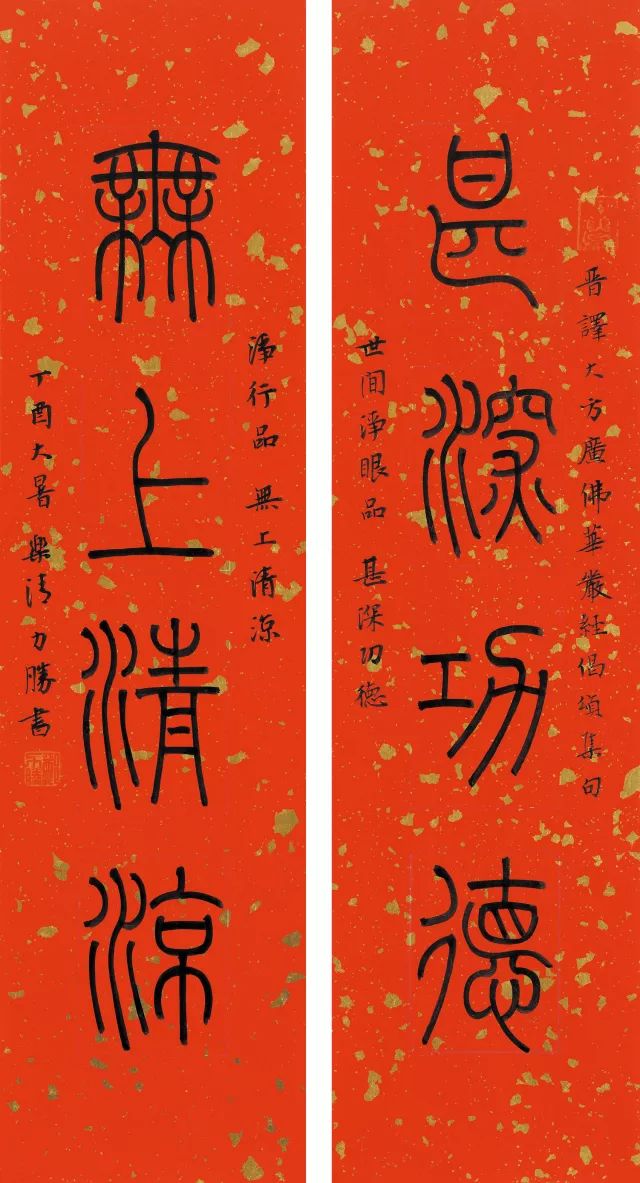 晋譯大方廣佛華嚴経偈頌集句
甚深功德
世间淨眼品 甚深功德
淨行品 無上清涼
無上清涼
丁酉大暑樂清力勝書